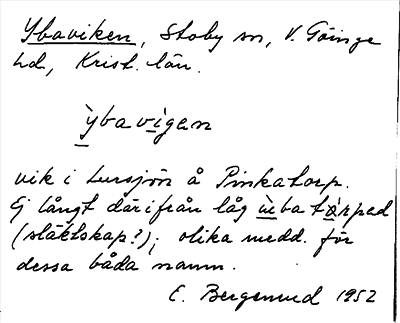 Ybaviken, Stoby sn, V. Göinge
hd, Krist. län.
ỳbavigen
vik i Lursjön å Pinkatorp.
Ej långt därifrån låg
(släktskap?); olika medd. för
dessa båda namn.
E. Bergenud 1952